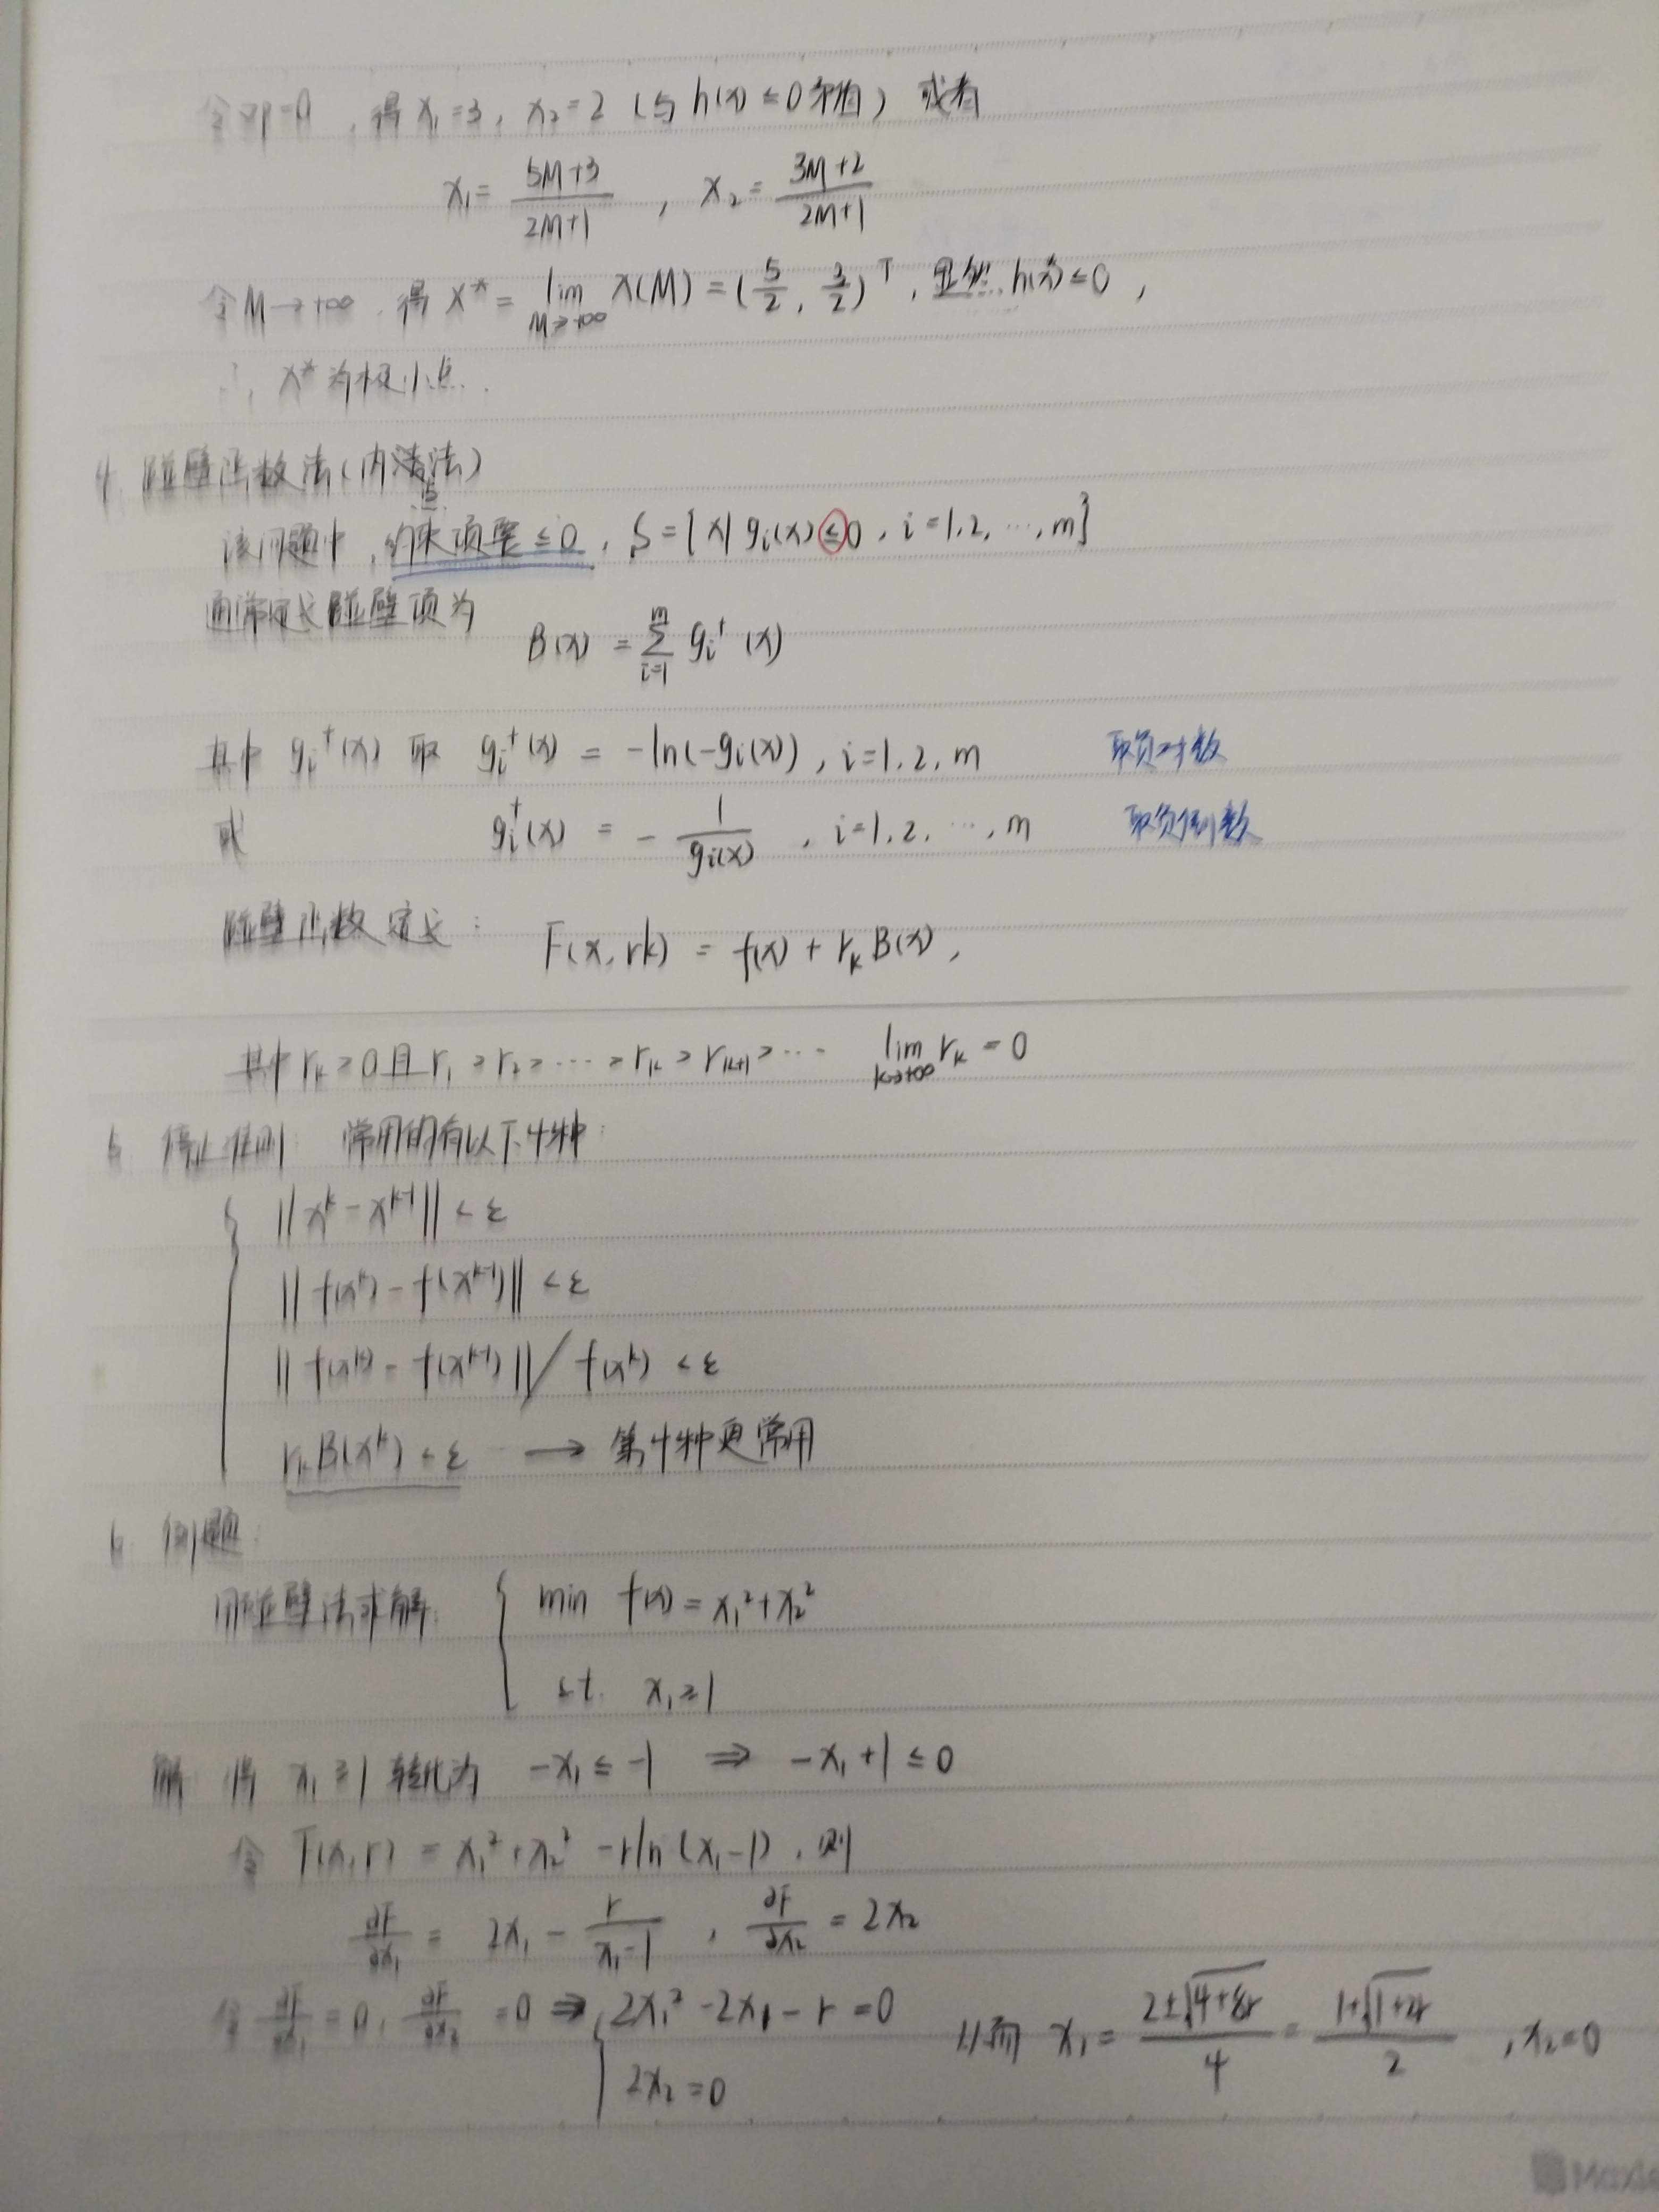 令∇p=0，得 x₁=3, x₂=2 (与 h(x)≤0 矛盾) 或有
x₁ = (5M+3)/(2M+1) , x₂ = (3M+2)/(2M+1)
令M→+∞，得 x* = lim_{M→+∞} x(M) = (5/2, 3/2)ᵀ, 显然 h(x*)≤0，
∴ x*为极小点.
4. 碰壁函数法(内点法)
该问题中，约束项要≤0，S={x| gᵢ(x)≤0, i=1,2,…,m}
通常定义碰壁项为
B(x) = Σ_{i=1}^{m} gᵢ⁺(x)
其中 gᵢ⁺(x) 取 gᵢ⁺(x) = -ln(-gᵢ(x)), i=1,2,m 取负对数
或 gᵢ⁺(x) = - 1/gᵢ(x) , i=1,2,…,m 取负倒数
碰壁函数定义: F(x, rk) = f(x) + r_k B(x),
其中 r_k≥0 且 r₁>r₂>…>r_k>r_{k+1}>… lim_{k→+∞} r_k = 0
5. 停止准则: 常用的有以下4种:
||x^k - x^{k-1}|| < ε
||f(x^k) - f(x^{k-1})|| < ε
||f(x^k) - f(x^{k-1})|| / f(x^k) < ε
r_k B(x^k) < ε → 第4种更常用
6. 例题:
用碰壁法求解: { min f(x) = x₁²+x₂²
s.t. x₁≥1
解: 将 x₁≥1 转化为 -x₁≤-1 ⇒ -x₁+1≤0
令 F(x,r) = x₁²+x₂² -rln(x₁-1), 则
∂F/∂x₁ = 2x₁ - r/(x₁-1) , ∂F/∂x₂ = 2x₂
令 ∂F/∂x₁=0, ∂F/∂x₂=0 ⇒ { 2x₁²-2x₁-r=0 从而 x₁ = (2±√(4+8r))/4 = (1+√(1+2r))/2 , x₂=0
2x₂=0